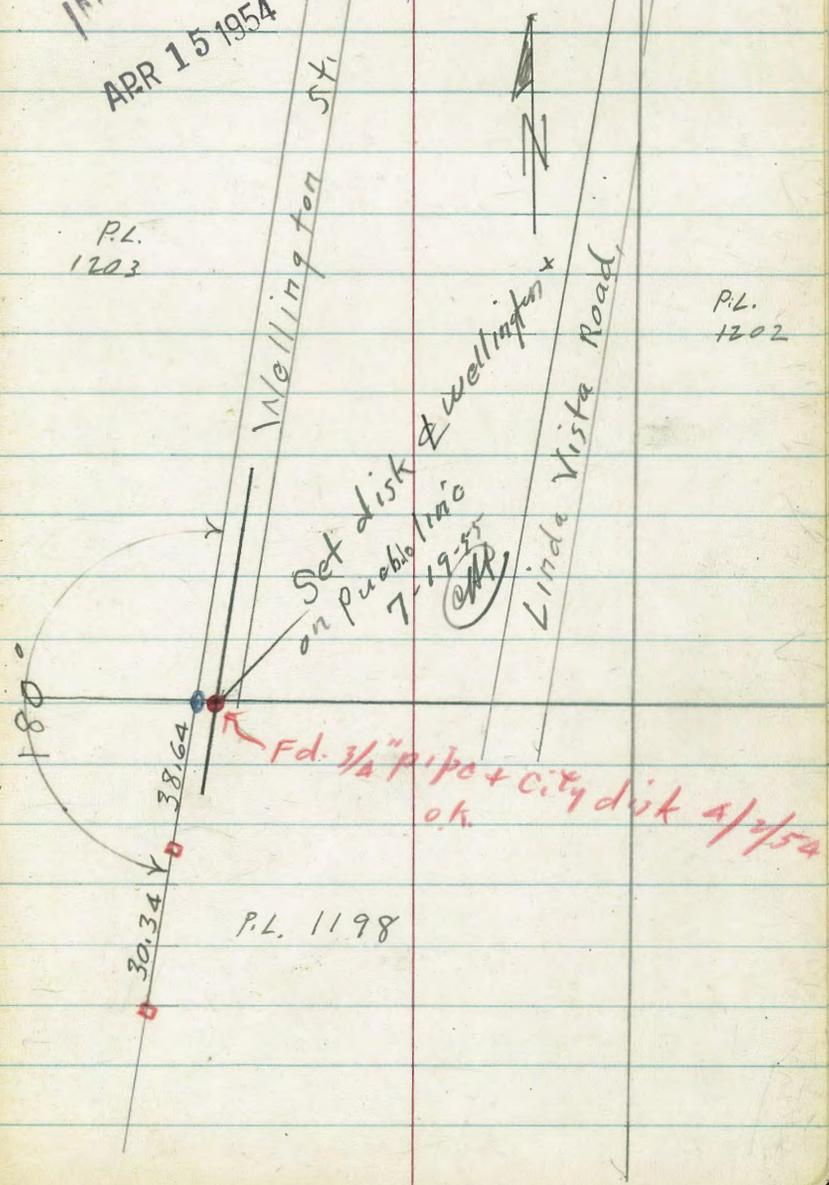 APR 15 1954
Wellington St.
N
P.L.
1203
P.L.
1202
Linda Vista Road
Set disk ℄ Wellington
on pueblo line
7-19-55
180°
38.64
Fd. 3/4" pipe + City disk 4/2/54
o.k.
30.34
P.L. 1198